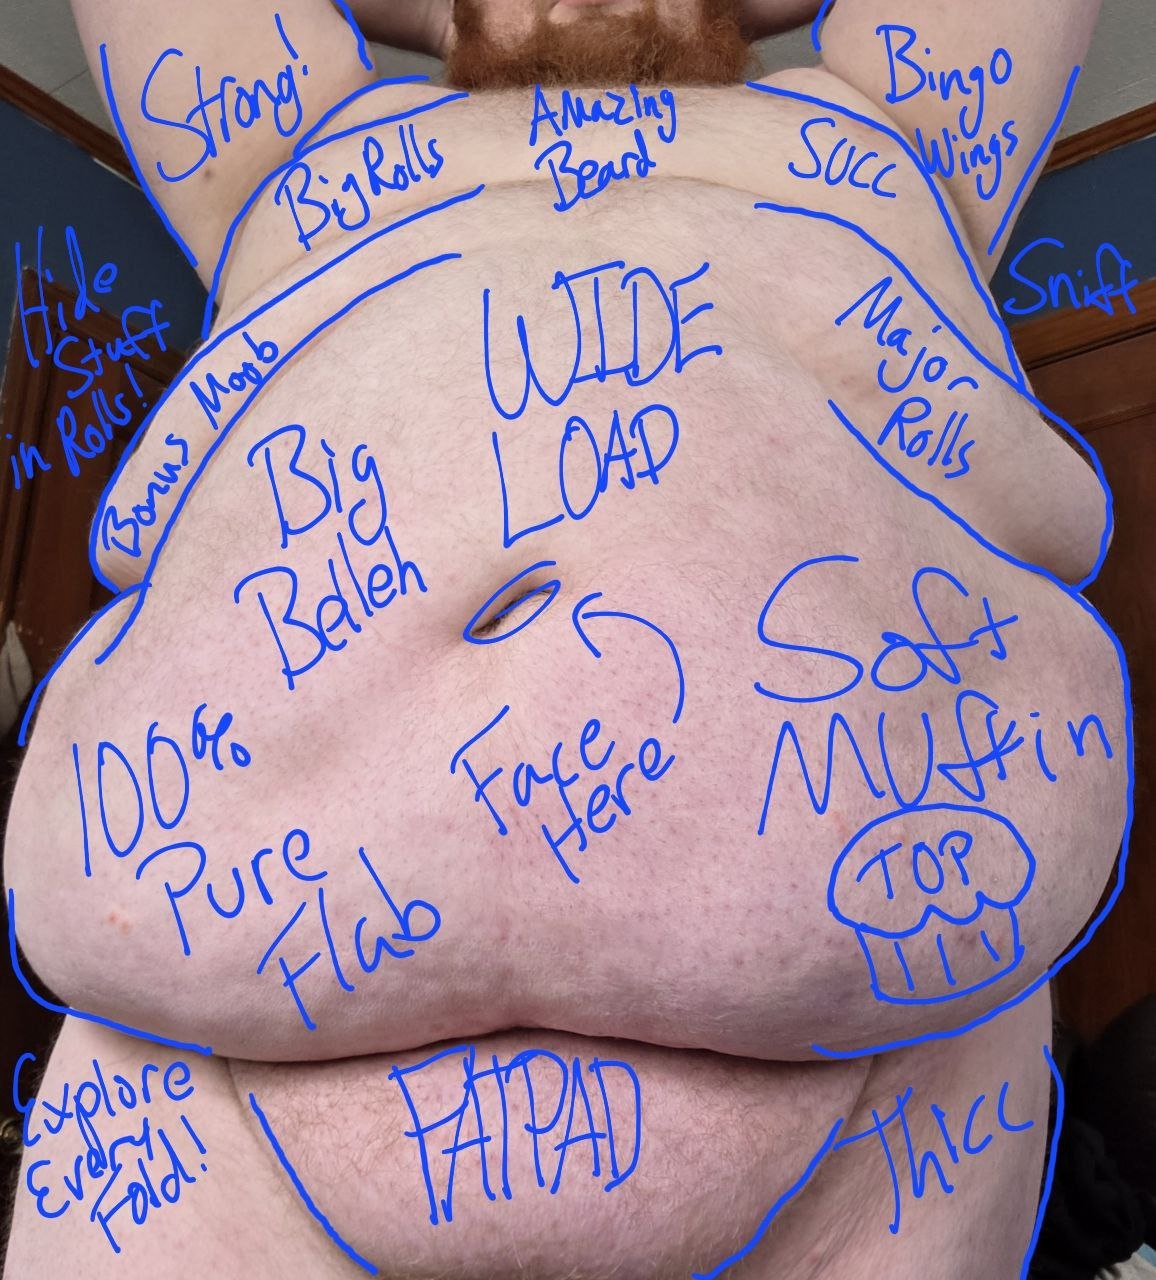 Strong!
Bingo
Wings
Amazing
Beard
Big Rolls
Succ
Hide
Stuff
in Rolls!
Sniff
WIDE
LOAD
Major
Rolls
Bonus Moob
Big
Belleh
Soft
Muffin
TOP
100%
Pure
Flab
Face
Here
FATPAD
Explore
Every
Fold!
Thicc